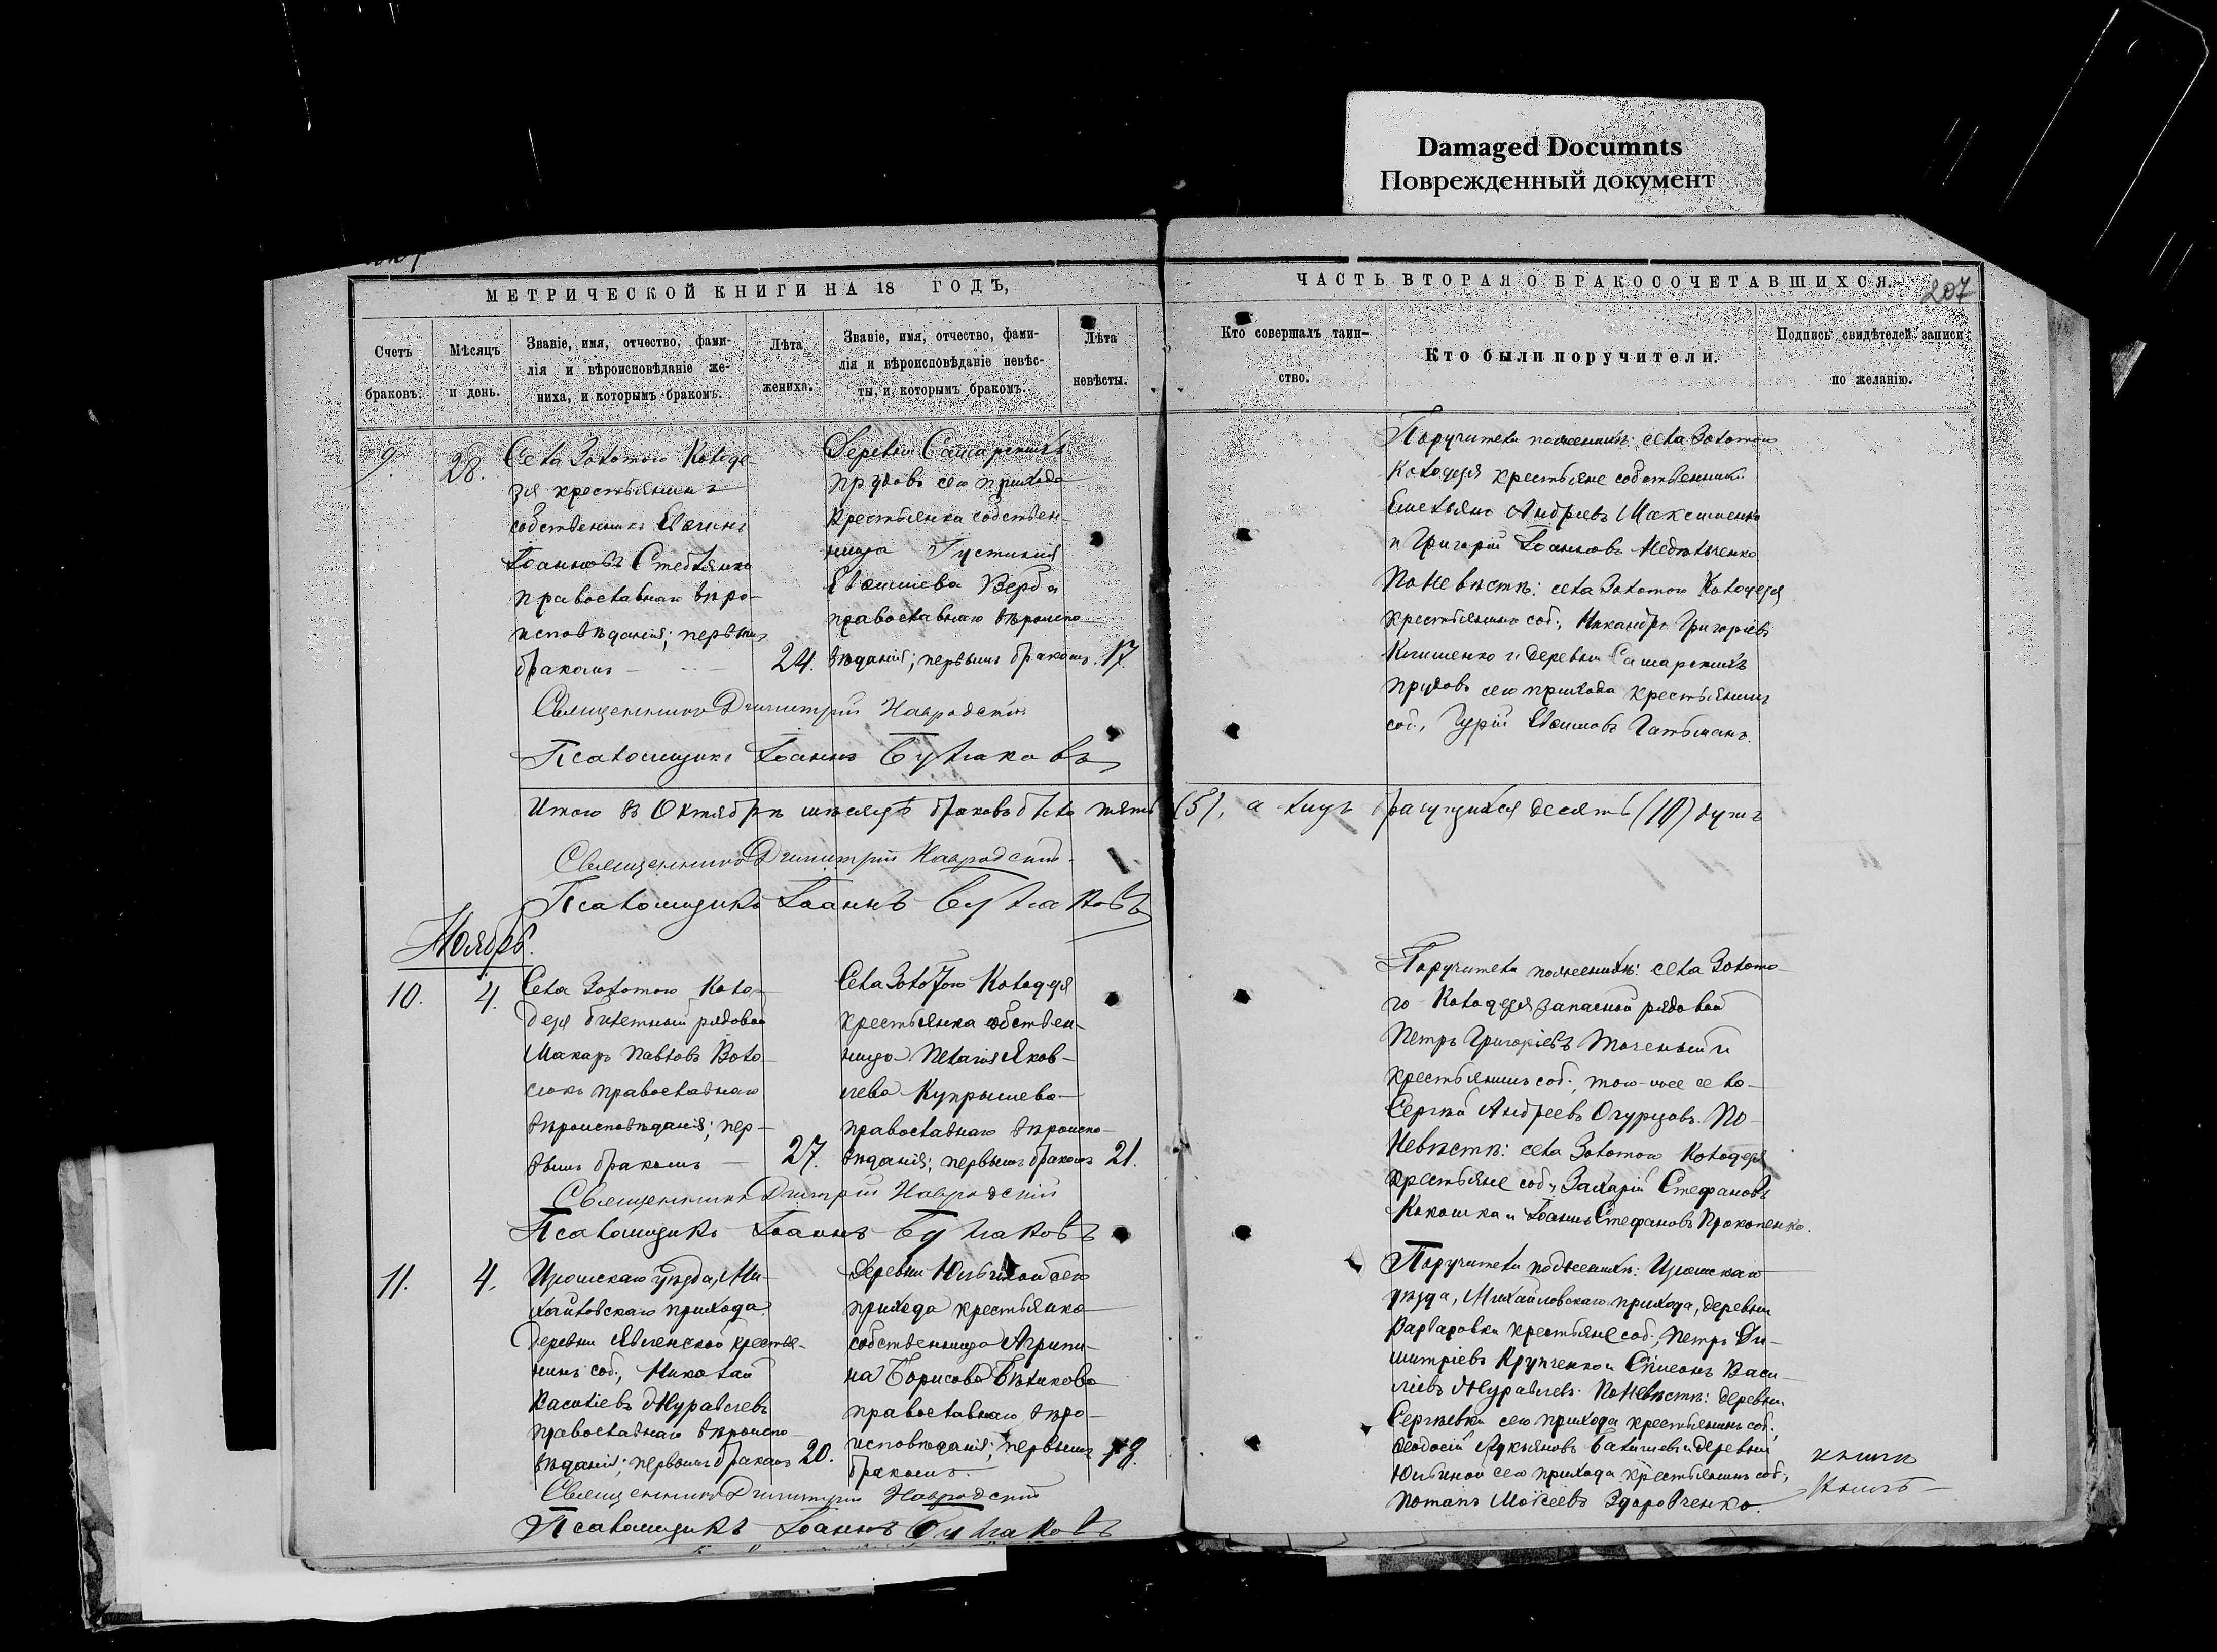 Damaged Documnts
Поврежденный документ
МЕТРИЧЕСКОЙ КНИГИ НА 18 ГОДЪ,
ЧАСТЬ ВТОРАЯ О БРАКОСОЧЕТАВШИХСЯ.
207
Счетъ
браковъ.
Мѣсяцъ
и день.
Званіе, имя, отчество, фами-
лія и вѣроисповѣданіе же-
ниха, и которымъ бракомъ.
Лѣта
жениха.
Званіе, имя, отчество, фами-
лія и вѣроисповѣданіе невѣс-
ты, и которымъ бракомъ.
Лѣта
невѣсты.
Кто совершалъ таин-
ство.
Кто были поручители.
Подпись свидѣтелей записи
по желанію.
9.
28.
Села Золотого Колоде-
зя крестьянинъ
собственникъ
Іоанновъ Стеблянко
православнаго вѣро-
исповѣданія; первымъ
бракомъ
24.
Деревни Самарскихъ
прудовъ сего прихода
крестьянка собствен-
ница Іустинія
Верба
православнаго вѣроиспо-
вѣданія; первымъ бракомъ.
17.
Поручители по женихѣ: села Золотого
Колодезя крестьяне собственники
Емельянъ Андреевъ Максименко
и Григорій Іоанновъ
По невѣстѣ: села Золотого Колодезя
крестьянинъ соб., Никандръ Григорьевъ
и деревни Самарскихъ
прудовъ сего прихода крестьянинъ
соб., Гурій
Священникъ Димитрій Навродскій
Псаломщикъ Іоаннъ Булгаковъ
Итого въ Октябрѣ мѣсяцѣ браковъ было пять (5), а лицъ брачущихся десять (10) душъ
Священникъ Димитрій Навродскій
Псаломщикъ Іоаннъ Булгаковъ
Ноябрь.
10.
4.
Села Золотого Коло-
дезя билетный рядовой
Макаръ Павловъ Воло-
православнаго
вѣроисповѣданія; пер-
вымъ бракомъ
27.
Села Золотого Колодезя
крестьянка собствен-
ница Пелагія Яков-
лева Купрышева
православнаго вѣроиспо-
вѣданія; первымъ бракомъ
21.
Поручители по женихѣ: села Золото-
го Колодезя запасной рядовой
Петръ Григорьевъ и
крестьянинъ соб., того-же села
Сергѣй Андреевъ Огурцовъ. По
невѣстѣ: села Золотого Колодезя
крестьяне соб., Захарій Стефановъ
Кокошка и Іоаннъ Стефановъ Прокопенко.
Священникъ Димитрій Навродскій
Псаломщикъ Іоаннъ Булгаковъ
11.
4.
Изюмскаго уѣзда, Ми-
хайловскаго прихода
деревни крестья-
нинъ соб., Николай
Василіевъ Журавлевъ
православнаго вѣроиспо-
вѣданія; первымъ бракомъ
20.
Деревни сего
прихода крестьянка
собственница Агрипи-
на Борисова Бѣликова
православнаго вѣро-
исповѣданія; первымъ
бракомъ.
Поручители по женихѣ: Изюмскаго
уѣзда, Михайловскаго прихода, деревни
Варваровки крестьяне соб., Петръ Ди-
митріевъ Крупченко и Симеонъ Васи-
ліевъ Журавлевъ. По невѣстѣ: деревни
Сергѣевки сего прихода крестьянинъ соб.,
Ѳеодосій Лукьяновъ и деревни
сего прихода крестьянинъ соб.,
Потапъ Моисеевъ Здоровченко.
Священникъ Димитрій Навродскій
Псаломщикъ Іоаннъ Булгаковъ